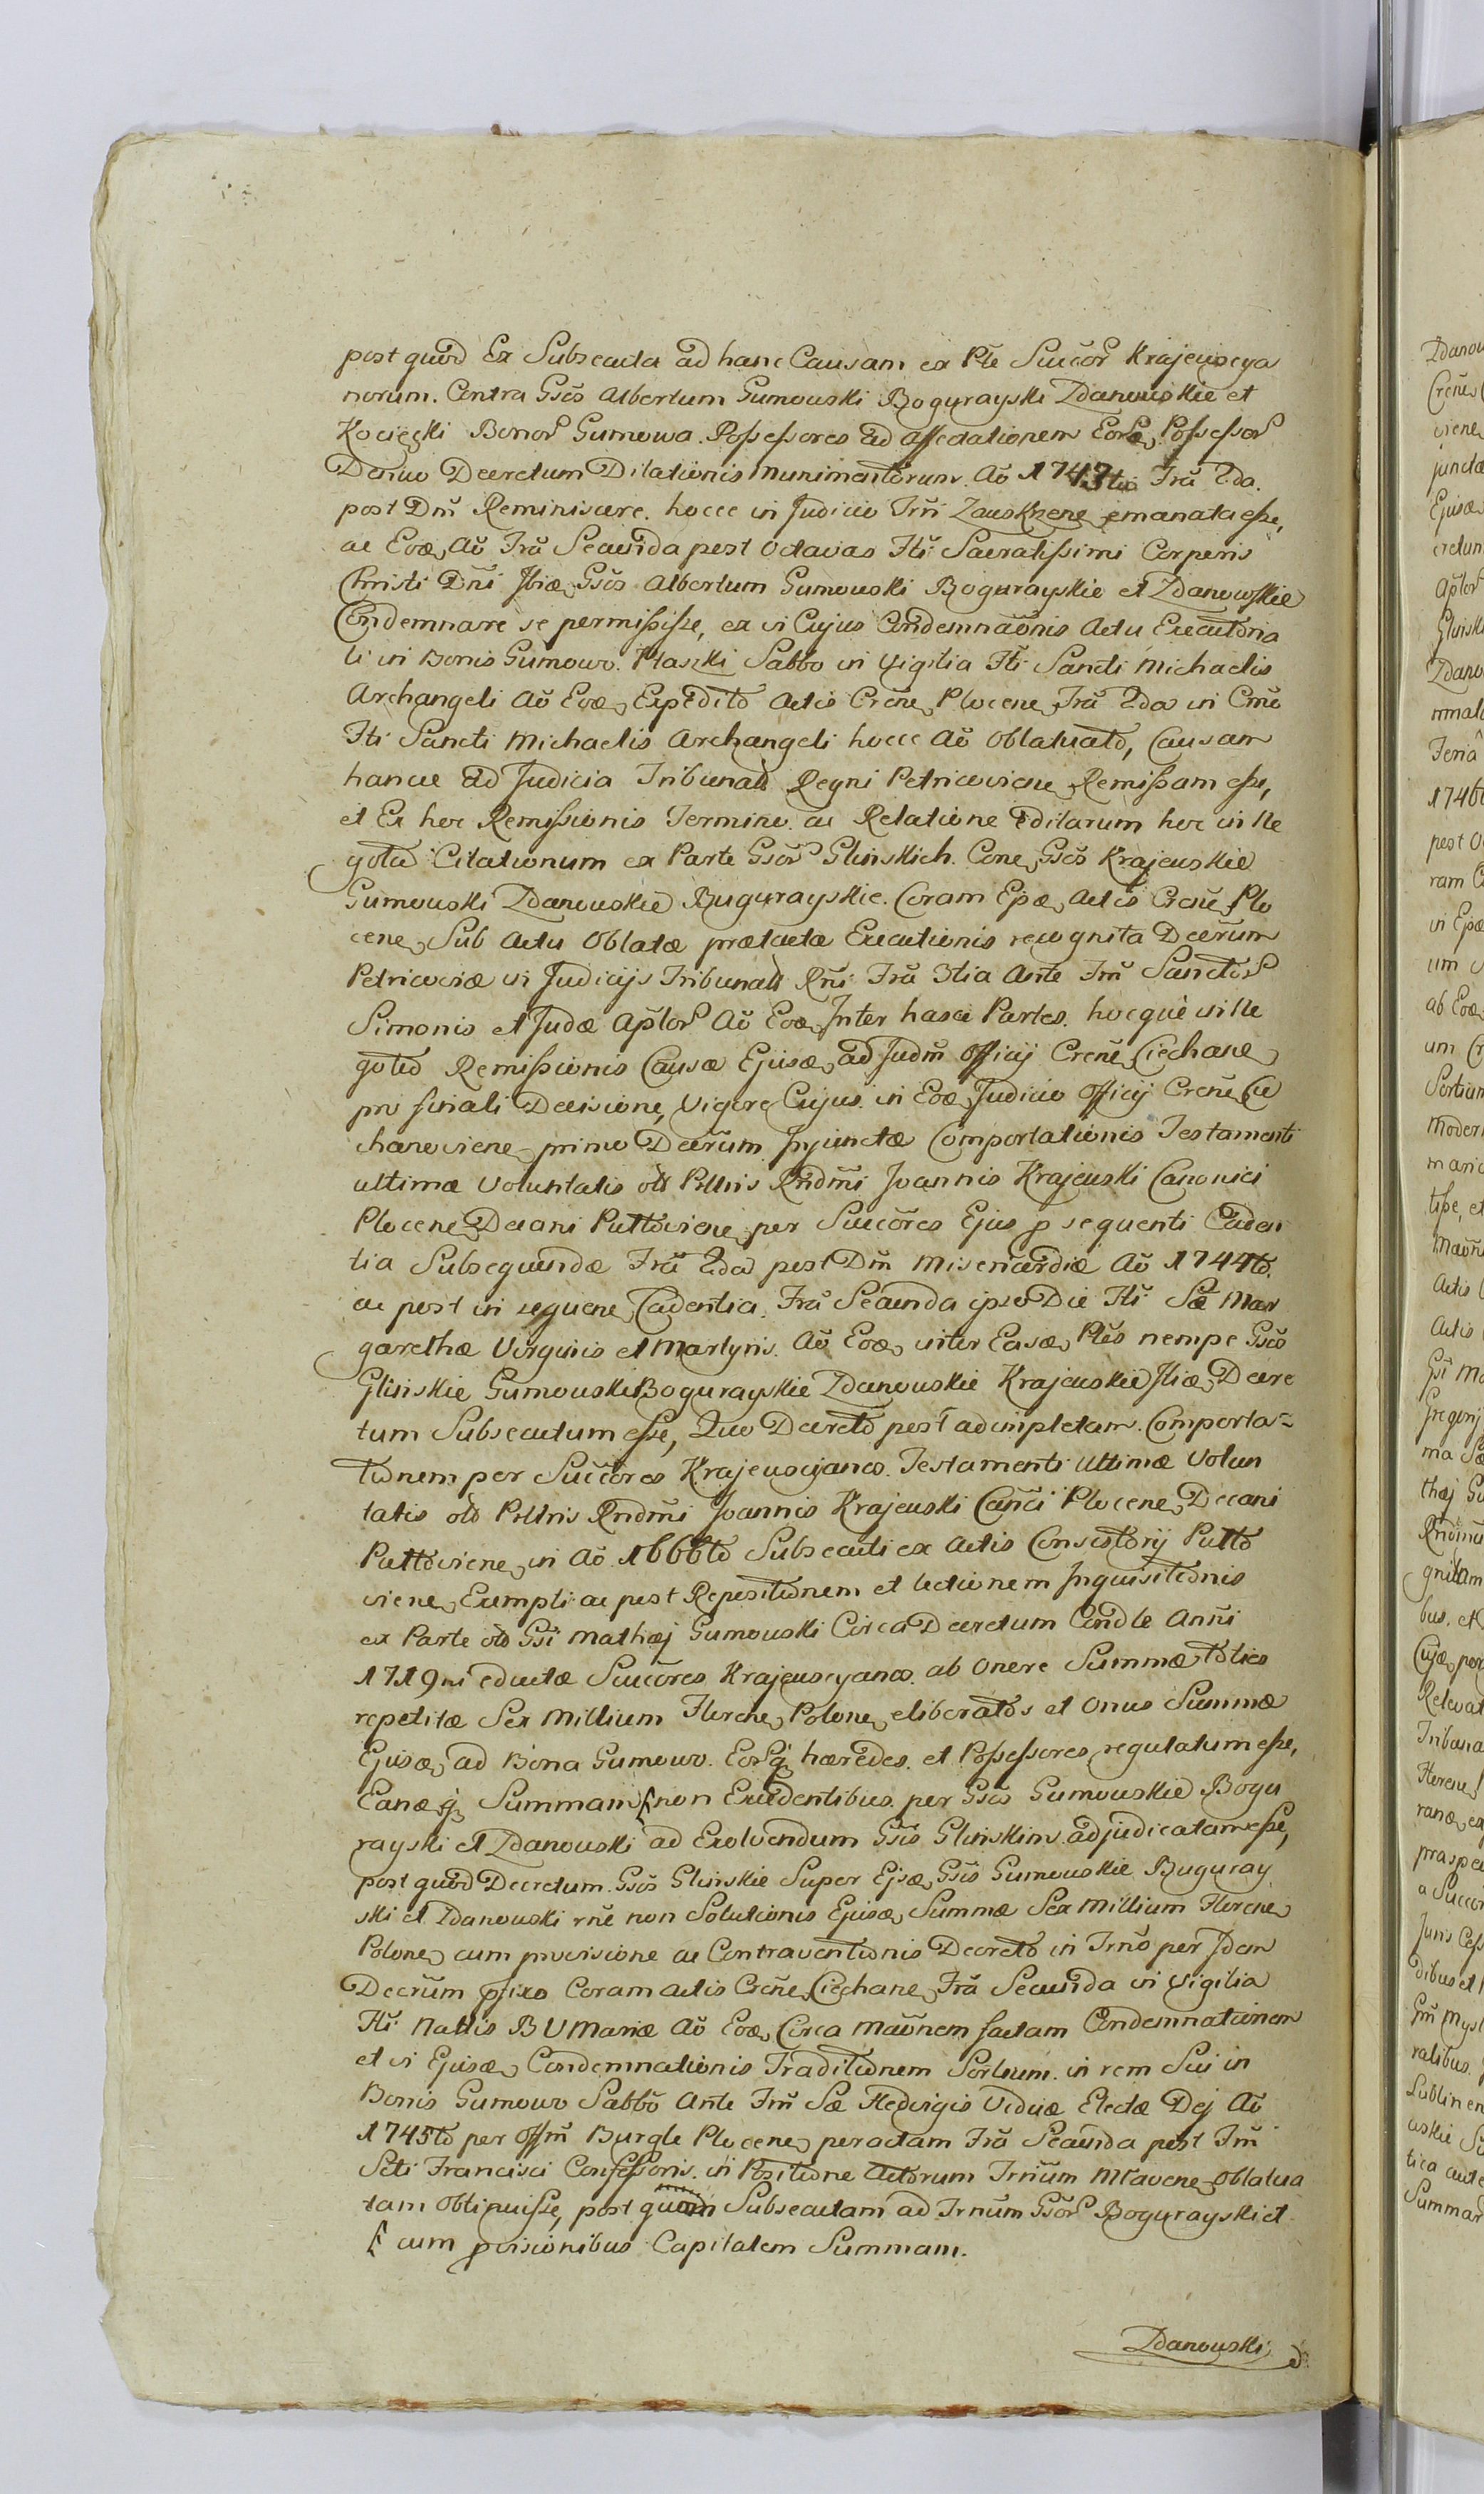 post quod Ex Subsecuta ad hanc Causam ex Pte Succor Krajewscya
norum. Contra Gsos Albertum Gumowski Bogurayski Zdanowskie et
Kocięcki Bonor Gumowa Possessores ad affectationem Eorſæ Possessor
Denuo Decretum Dilationis Munimentorum Ao 1743tio Fra 2da
post Dm Reminiscere hocce in Judicio Trri Zauskrzene emanata esse,
ac Eoæ Ao Fra Secunda post Octavas Fti Sacratissimi Corporis
Christi Dni Ibiæ Gsos Albertum Gumowski Bogurayskie et Zdanowskie
Condemnare se permisisse, ex vi Cujus Condemnaonis Actu Executoria
li in Bonis Gumowo Plaszki Sabbo in Vigilia Fti Sancti Michaelis
Archangeli Ao Eoæ Expedito Actis Crene Plocene Fra 2da in Cmo
Fti Sancti Michaelis Archangeli hocce Ao Oblatuato, Causam
hance ad Judicia Tribunali Regni Petricoviene Remissam esse,
et Ex hoc Remissionis Termino ac Relatione Editarum hoc in Ne
gotio Citationum ex Parte Gsor Glinskich. Cone Gsos Krajewskie
Gumowski Zdanowskie Bugurayskie. Coram Ejæ Actis Crene Plo
cene Sub Actu Oblatæ prætactæ Executionis recognita Decrum
Petricoviæ in Judicijs Tribunali Rni Fra 3tia Ante Fm Sanctor
Simonis et Judæ Aplor Ao Eoæ Inter hasce Partes hocque in Ne
gotio Remissionis Causæ Ejusæ ad Judm Officij Crene Ciechane
pro finali Decisione, Vigore Cujus in Eoæ Judicio Officij Crene Cie
chanoviene primo Decrum Injunctæ Comportationis Testamenti
ultimæ Voluntatis old Plltris Rndmi Joannis Krajewski Canonici
Plocene Decani Pultoviene per Succores Ejus p sequenti Caden
tia Subsequendæ Fra 2da post Dm Misericordiæ Ao 1744to
ac post in sequene Cadentia Fra Secunda ipso Die Fti Sæ Mar
garethæ Virginis et Martyris Ao Eoæ inter Easæ Ptes nempe Gsos
Glinskie Gumowski Bogurayskie Zdanowskie Krajewskie Ibiæ Decre
tum Subsecutum esse, Quo Decreto post adimpletam Comporta=
tionem per Succores Krajewscyanos Testamenti Ultimæ Volun
tatis old Plltris Rndmi Joannis Krajewski Canci Plocene Decani
Pultoviene in Ao 1666to Subsecuti ex Actis Consistorij Pulto
viene Exempli ac post Repositionem et lectionem Inquisitionis
ex Parte old Gsi Mathæj Gumowski Circa Decretum Condle Anni
1719ni eductæ Succores Krajewscyanos ab Onere Summæ toties
repetitæ Sex Millium Florene Polone eliberatos et Onus Summæ
Ejusæ ad Bona Gumowo Eorq hæredes et Possessores regulatum esse,
Eanæq Summam [ non Excedentibus per Gsos Gumowskie Bogu
rayski et Zdanowski ad Exolvendum Gsis Glinskim adjudicatam esse,
post quod Decretum Gsos Glinskie Super Ejsæ Gsis Gumowskie Buguray
ski et Zdanowski rne non Solutionis Ejusæ Summæ Sex Millium Florene
Polone cum provisione ac Contraventionis Decreto in Trno per Idem
Decrum pfixo Coram Actis Crene Ciechane Fra Secunda in Vigilia
Fti Natlis B V Mariæ Ao Eoæ Circa Maonem factam Condemnationem
et vi Ejusæ Condemnationis Traditionem Sortium in rem Sui in
Bonis Gumowo Sabbo Ante Fm Sæ Hedvigis Viduæ Electæ Dej Ao
1745to per Offm Burgle Plocene peractam Fra Secunda post Fm
Scti Francisci Confessoris in Positione Actorum Trrium Mlavene Oblatua
tam Obtinuisse, post quam Subsecutam ad Trnum Gsor Bogurayski et
[ cum pvisionibus Capitalem Summam.
Zdanowski